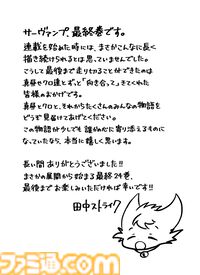 サーヴァンプ、最終巻です。
連載を始めた時には、まさかこんなに長く
描き続けられるとは思っていませんでした。
こうして最後まで走り切ることができたのは
真昼やクロ達とずっと"向き合って"きてくれた
皆様のおかげです。
真昼とクロと、それからたくさんのみんなの物語を
どうぞ見届けてあげてください。
この物語が少しでも誰かの心に寄り添えるものに
なっていたなら、本当に嬉しく思います。
長い間ありがとうございました!!
まさかの展開から始まる最終24巻、
最後までお楽しみいただければ幸いです!!
田中ストライク
ファミ通.com